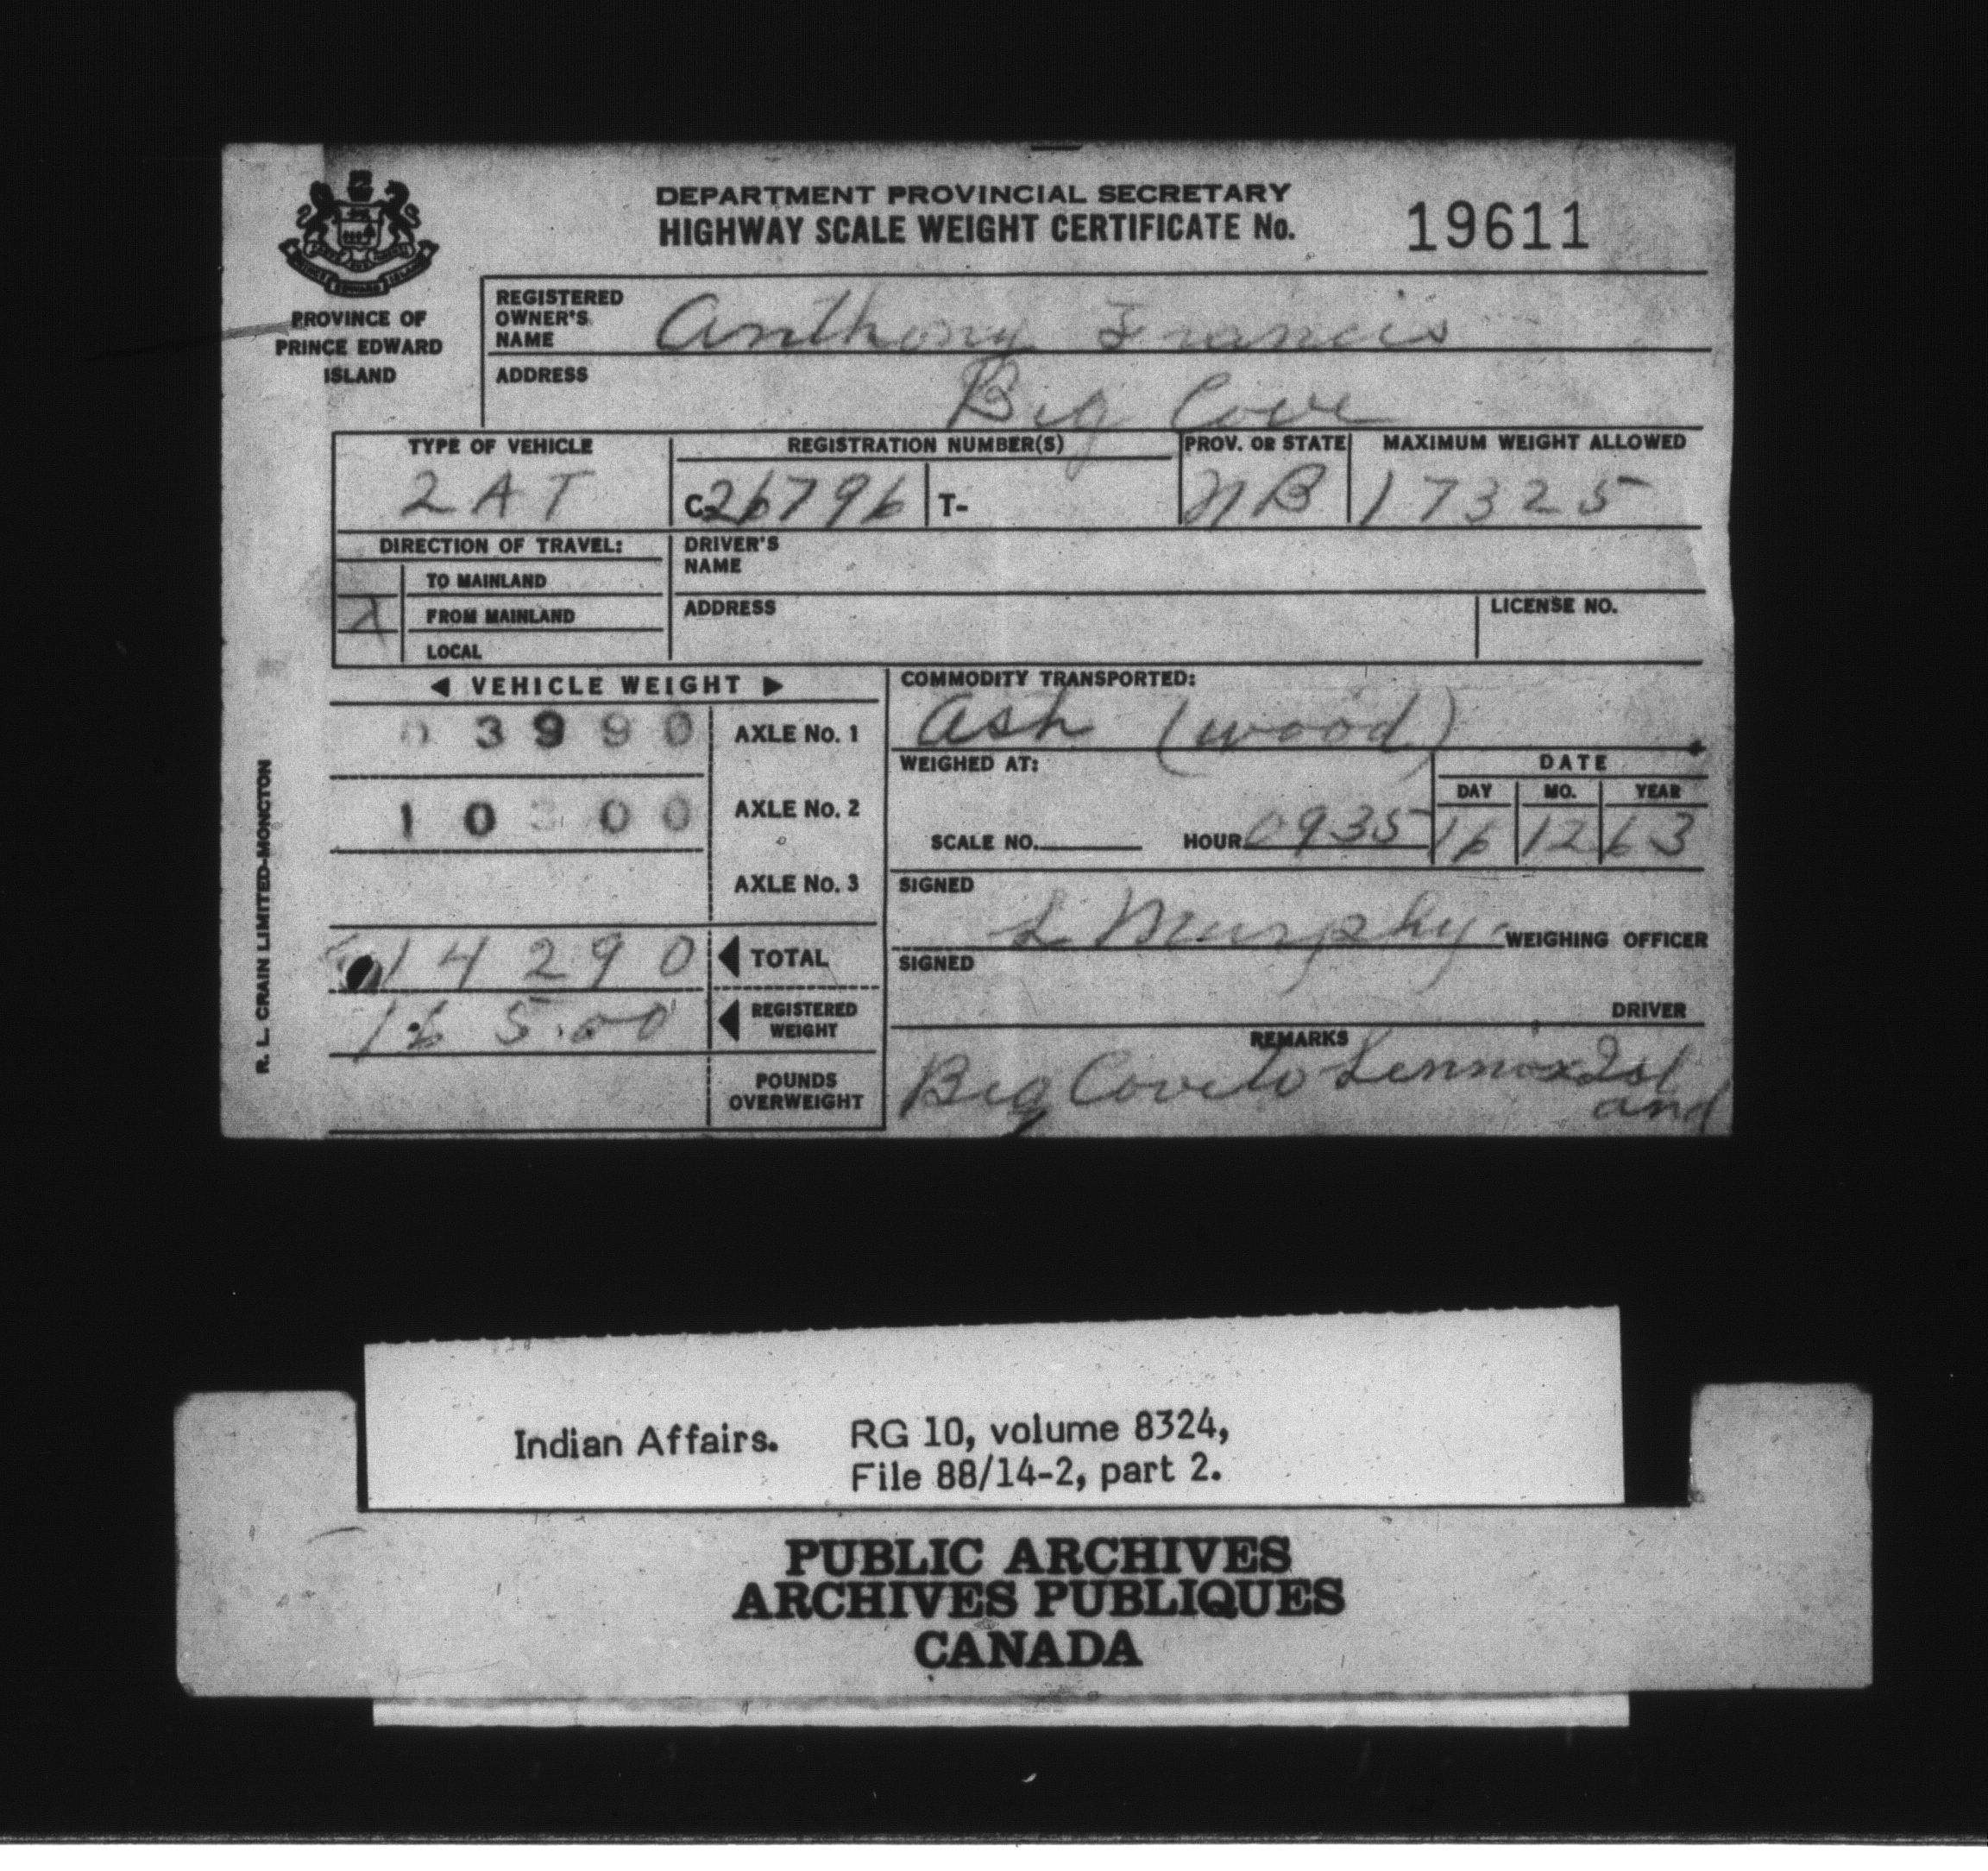 DEPARTMENT PROVINCIAL SECRETARY
HIGHWAY SCALE WEIGHT CERTIFICATE No. 19611
PROVINCE OF
PRINCE EDWARD
ISLAND
REGISTERED OWNER'S NAME Anthony Francis
ADDRESS Big Cove
TYPE OF VEHICLE
2AT
REGISTRATION NUMBER(S)
C-26796 T-
PROV. OR STATE
NB
MAXIMUM WEIGHT ALLOWED
17325
DIRECTION OF TRAVEL:
TO MAINLAND
X FROM MAINLAND
LOCAL
DRIVER'S NAME
ADDRESS
LICENSE NO.
◀ VEHICLE WEIGHT ▶
03990 AXLE No. 1
10300 AXLE No. 2
AXLE No. 3
14290 ◀ TOTAL
165.00 ◀ REGISTERED WEIGHT
POUNDS OVERWEIGHT
COMMODITY TRANSPORTED:
Ash (wood)
WEIGHED AT:
SCALE NO. HOUR 0935
DATE
DAY MO. YEAR
16 12 63
SIGNED
L Murphy WEIGHING OFFICER
SIGNED
DRIVER
REMARKS
Big Cove to Lennox Isl
and
R. L. CRAIN LIMITED-MONCTON
Indian Affairs. RG 10, volume 8324,
File 88/14-2, part 2.
PUBLIC ARCHIVES
ARCHIVES PUBLIQUES
CANADA